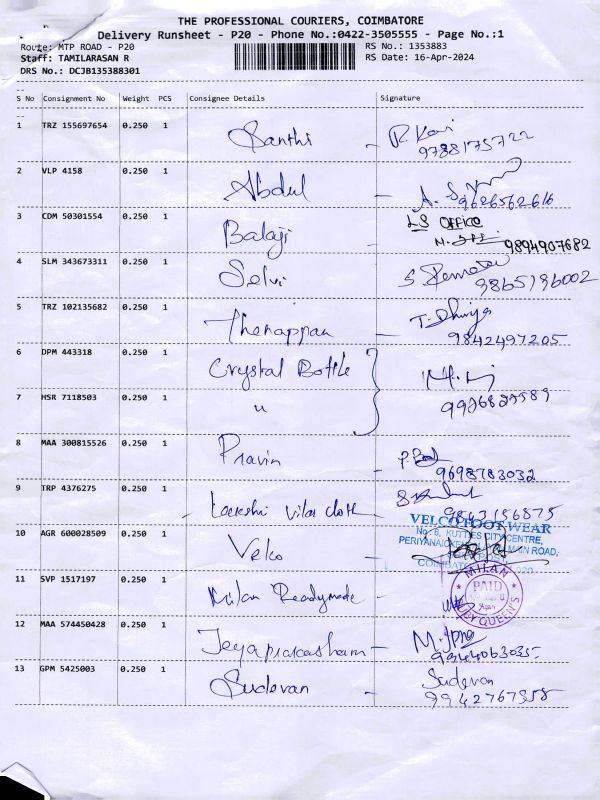 THE PROFESSIONAL COURIERS, COIMBATORE
Delivery Runsheet - P20 - Phone No.:0422-3505555 - Page No.:1
Route: MTP ROAD - P20 RS No.: 1353883
Staff: TAMILARASAN R RS Date: 16-Apr-2024
DRS No.: DCJB135388301
S No Consignment No Weight PCS Consignee Details Signature
1 TRZ 155697654 0.250 1 Santhi - R Kavi
9788175722
2 VLP 4158 0.250 1 Abdul - A.
9626562616
3 CDM 50301554 0.250 1 Balaji LS OFFICE
9894907682
4 SLM 343673311 0.250 1 Selvi - S
9865196002
5 TRZ 102135682 0.250 1 Thenappan - T. Dhivya
9842497205
6 DPM 443318 0.250 1 Crystal Bottle
7 HSR 7118503 0.250 1 "
8 MAA 300815526 0.250 1 Pravin -
9698783032
9 TRP 4376275 0.250 1 Vilas cloth -
9843156875
VELCO FOOT WEAR
10 AGR 600028509 0.250 1 Velco - No: 6, CITY CENTRE,
MAIN ROAD,
11 SVP 1517197 0.250 1 Milan Readymade - MILAN
PAID
QUEEN'S
12 MAA 574450428 0.250 1 Jeyaprakasham -
13 GPM 5425003 0.250 1 Sudevan - Sudevan
9942767358